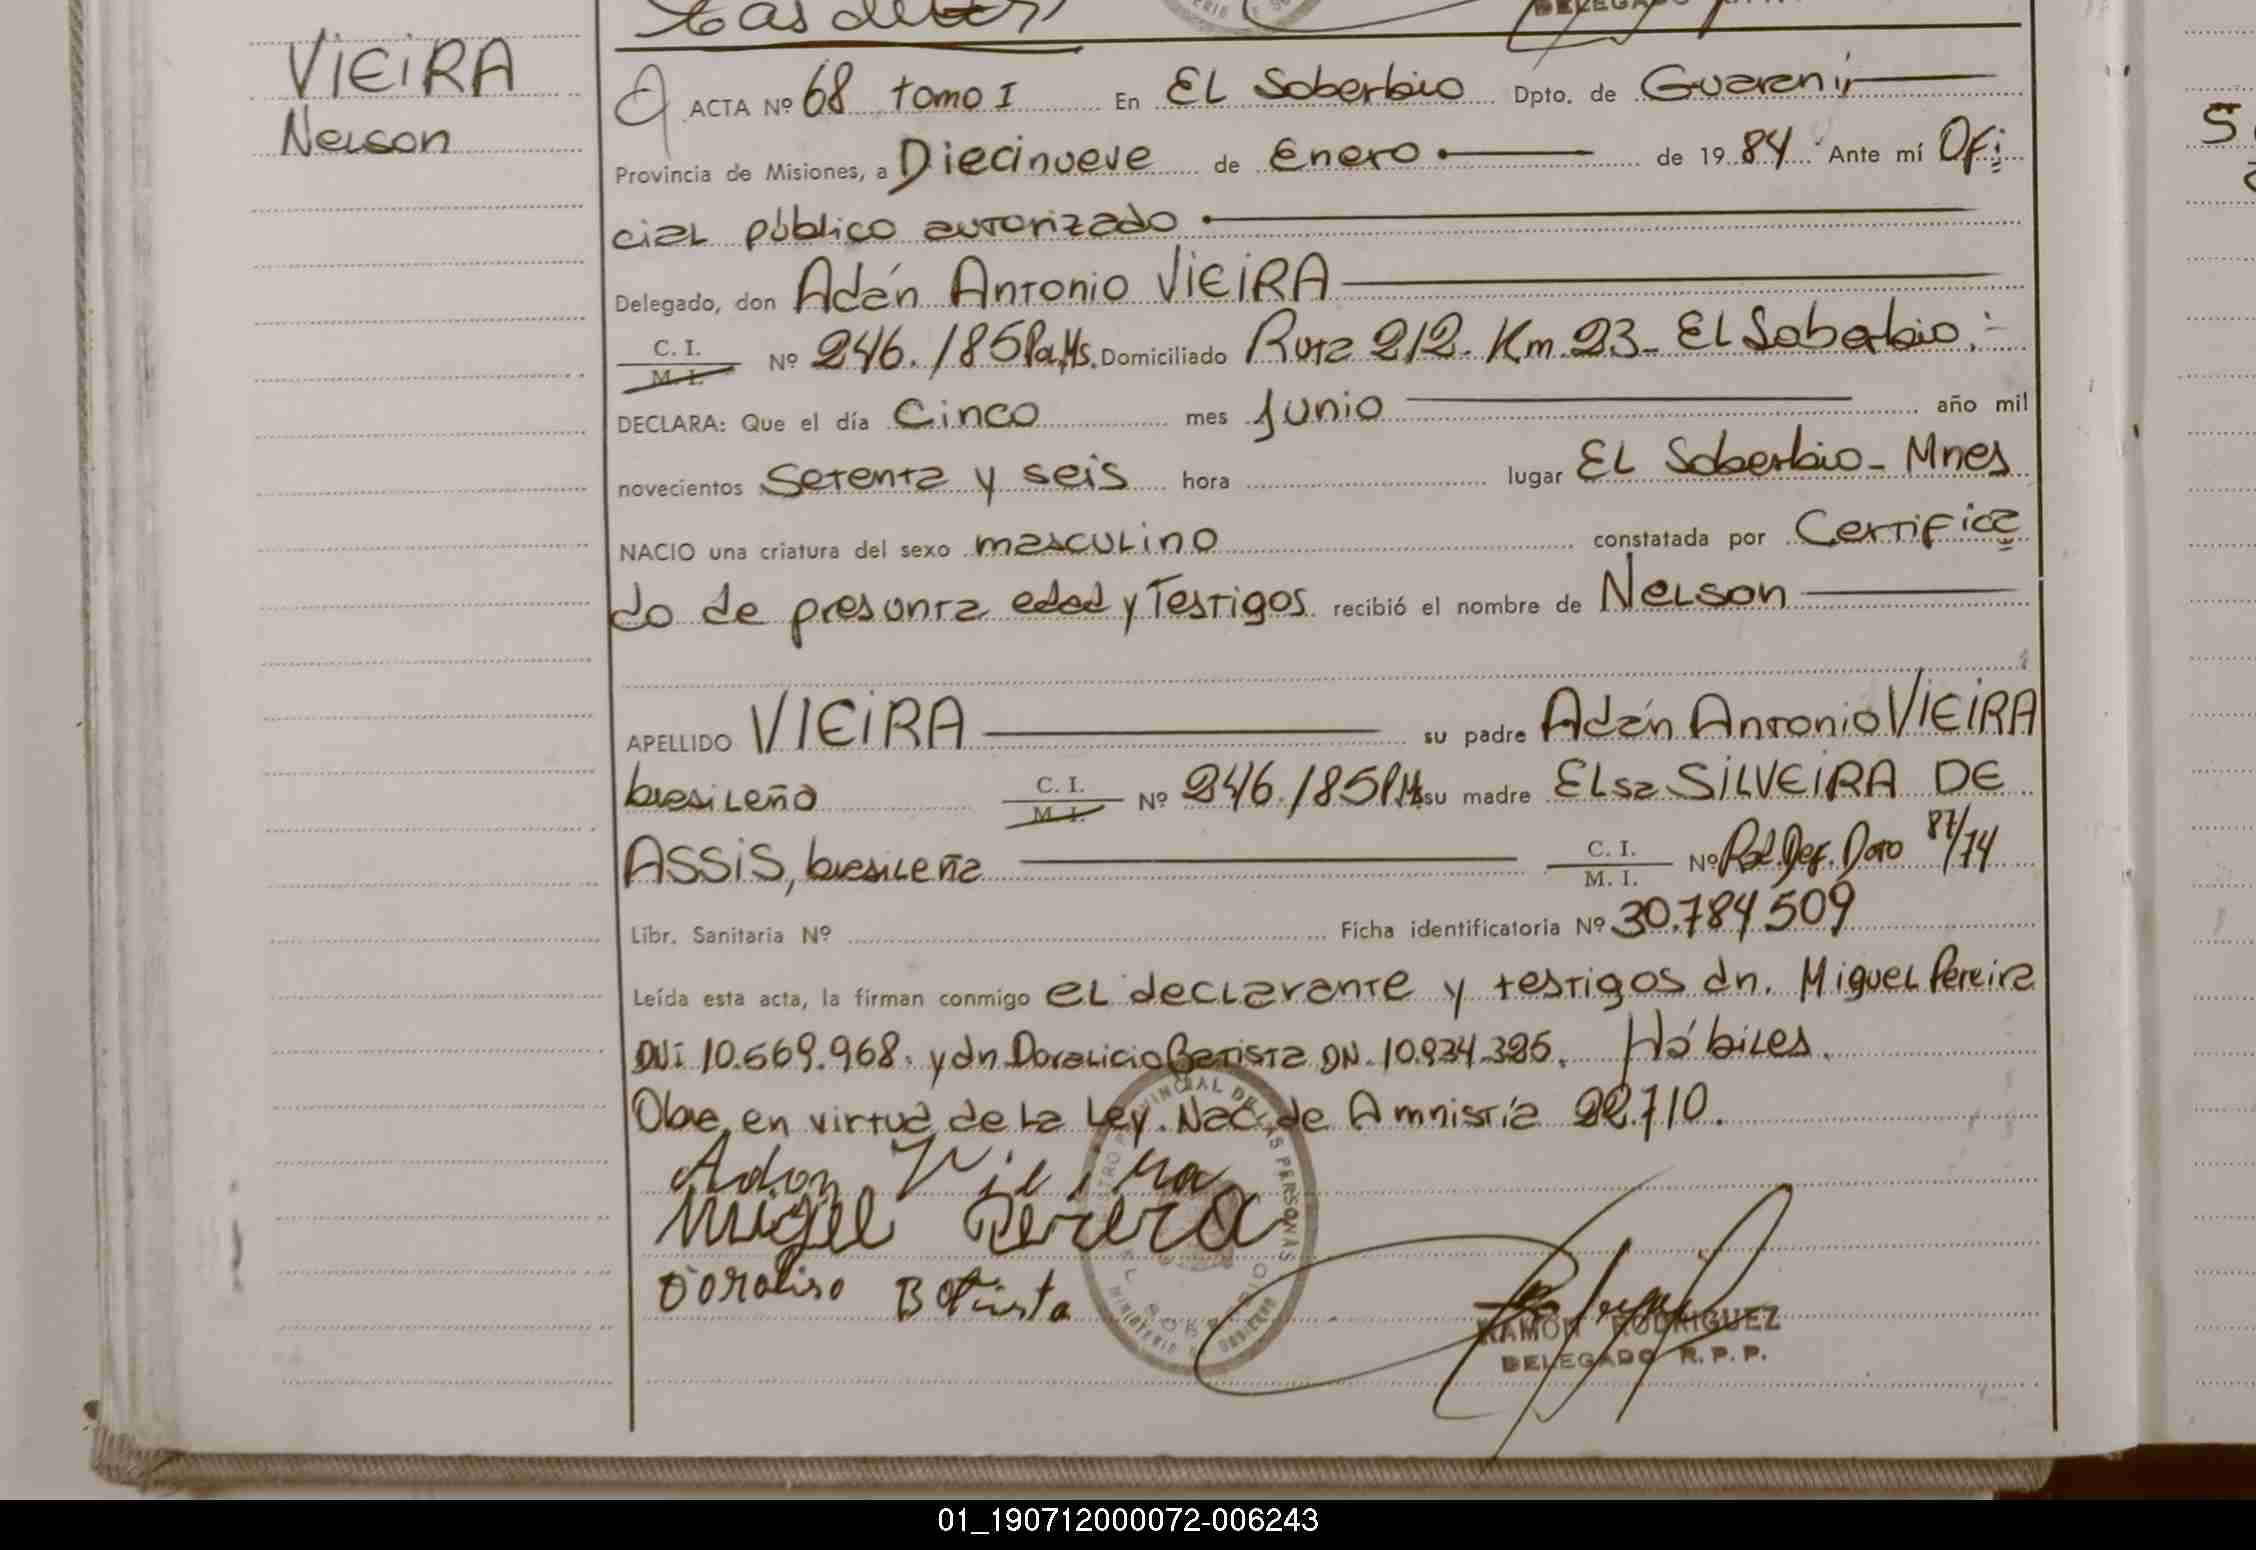 VIEIRA
Nelson
ACTA Nº 68 tomo I En EL Soberbio Dpto. de Guaraní
Provincia de Misiones, a Diecinueve de Enero de 1984 Ante mí Ofi
cial público autorizado
Delegado, don Adán Antonio VIEIRA
C. I.
M. I. Nº 246./85 Pol.Ms. Domiciliado Ruta 212. Km. 23- El Soberbio.
DECLARA: Que el día Cinco mes Junio año mil
novecientos Setenta y seis hora lugar EL Soberbio - Mnes
NACIO una criatura del sexo masculino constatada por Certifica
do de presunta edad y Testigos recibió el nombre de Nelson
APELLIDO VIEIRA su padre Adán Antonio VIEIRA
brasileño C. I. M. I. Nº 246./85 P.Ms su madre Elsa SILVEIRA DE
ASSIS, brasileña C. I. M. I. Nº Pol. 87/74
Libr. Sanitaria Nº Ficha identificatoria Nº 30.784509
Leída esta acta, la firman conmigo el declarante y testigos dn. Miguel Pereira
DNi 10.669.968. y dn Doralicio Batista DN. 10.934.395. Hábiles.
Obre en virtud de la Ley. Nac. de Amnistía 22.710.
Adan Vieira
Migel Perera
Doraliso Batista
RAMON RODRIGUEZ
DELEGADO R. P. P.
01_190712000072-006243